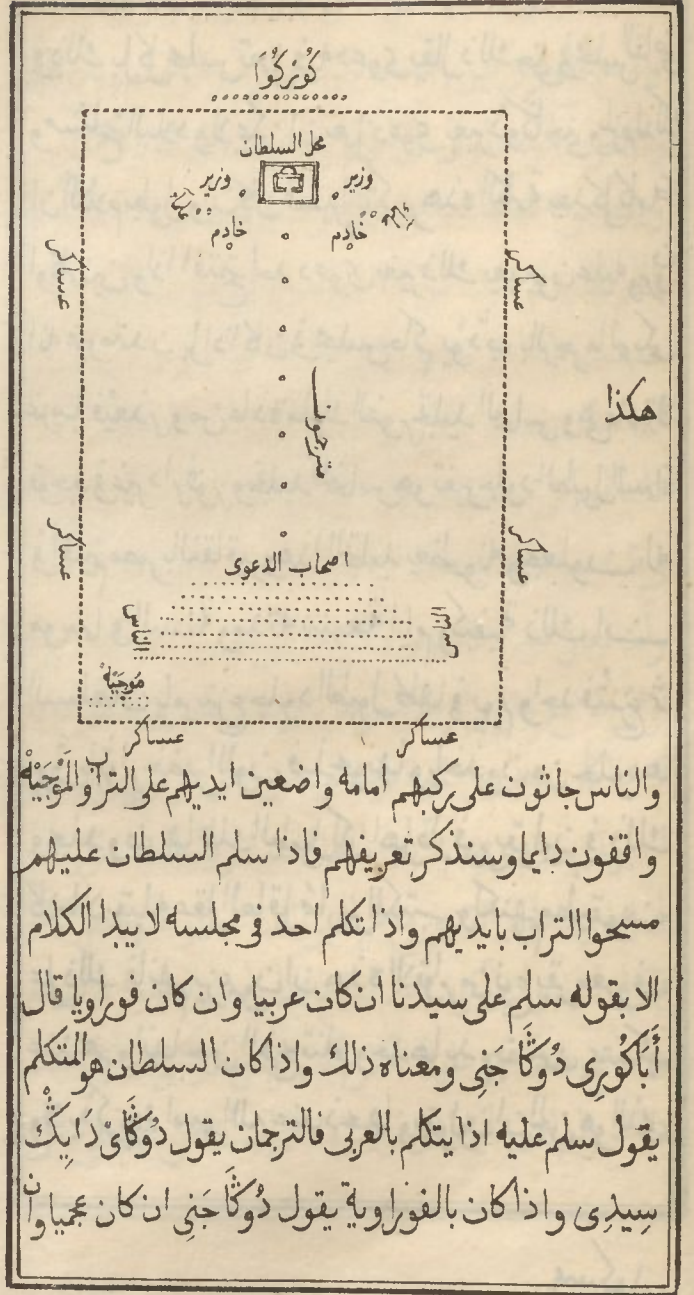 كُورْكُوَا
محل السلطان
وزير
وزير
خادم
خادم
عساكر
عساكر
هكذا
مترجمون
عساكر
عساكر
اصحاب الدعوى
الناس
الناس
مَوجَيْهْ
عساكر
عساكر
والناس جاثون على ركبهم امامه واضعين ايديهم على التراب والمَوْجَيْهْ
واقفون دايما وسنذكر تعريفهم فاذا سلم السلطان عليهم
مسحوا التراب بايديهم واذا تكلم احد فى مجلسه لا يبدا الكلام
الا بقوله سلم على سيدنا ان كان عربيا وان كان فوراويا قال
أَبَاكُورِى دُوكَّا جَنِى ومعناه ذلك واذا كان السلطان هو المتكلم
يقول سلم عليه اذا يتكلم بالعربى فالترجمان يقول
سِيدِى واذا كان بالفوراوية يقول دُوكَّا جَنِى ان كان عجميا وان